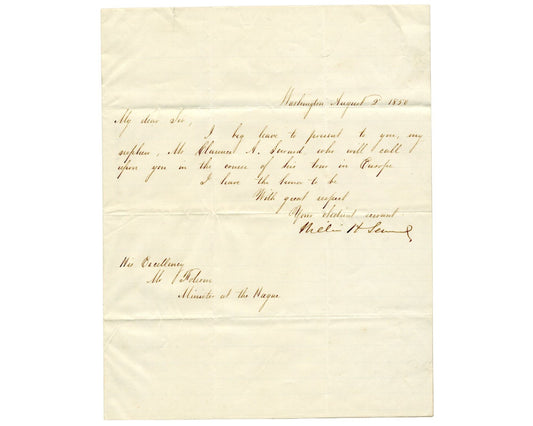 Washington August 2 1850
My dear Sir,
I beg leave to present to you, my
nephew, Mr Clarence A. Seward who will call
upon you in the course of his tour in Europe
I have the honor to be
With great respect
Your obedient servant
William H Seward
His Excellency
Mr Folsom
Minister at the Hague